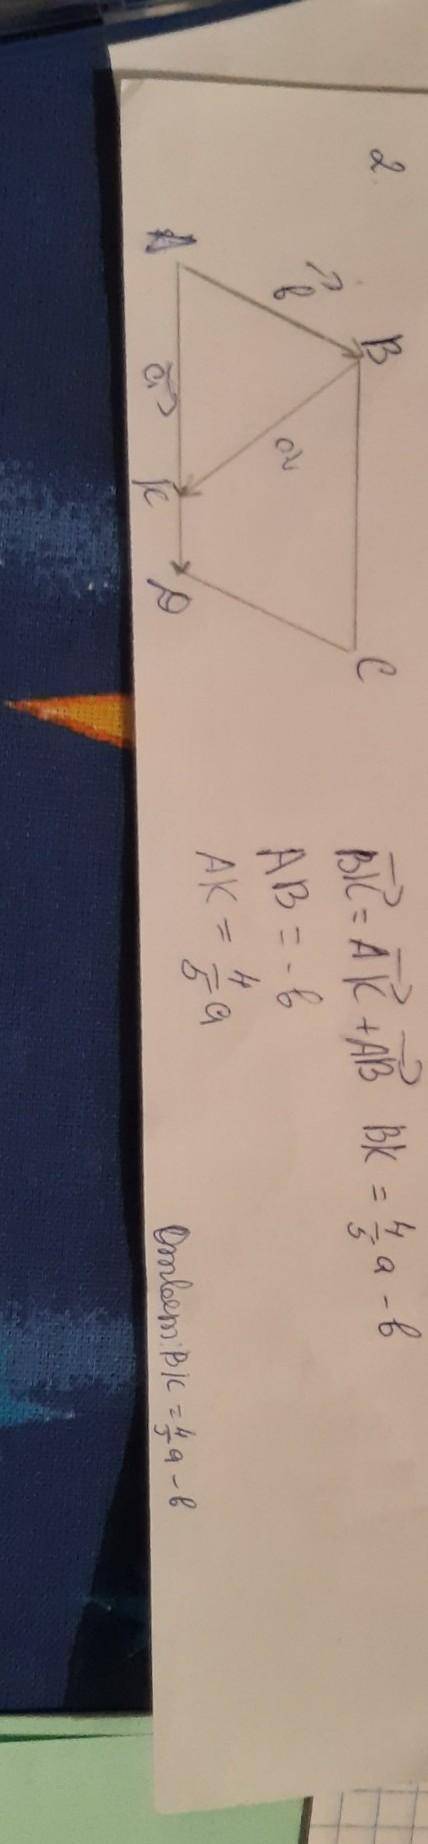 2.
A B C K D
b⃗
a⃗
a⃗
B⃗K = A⃗K + A⃗B BK = 4/5 a - b
AB = - b
AK = 4/5 a
Ответ: BK = 4/5 a - b